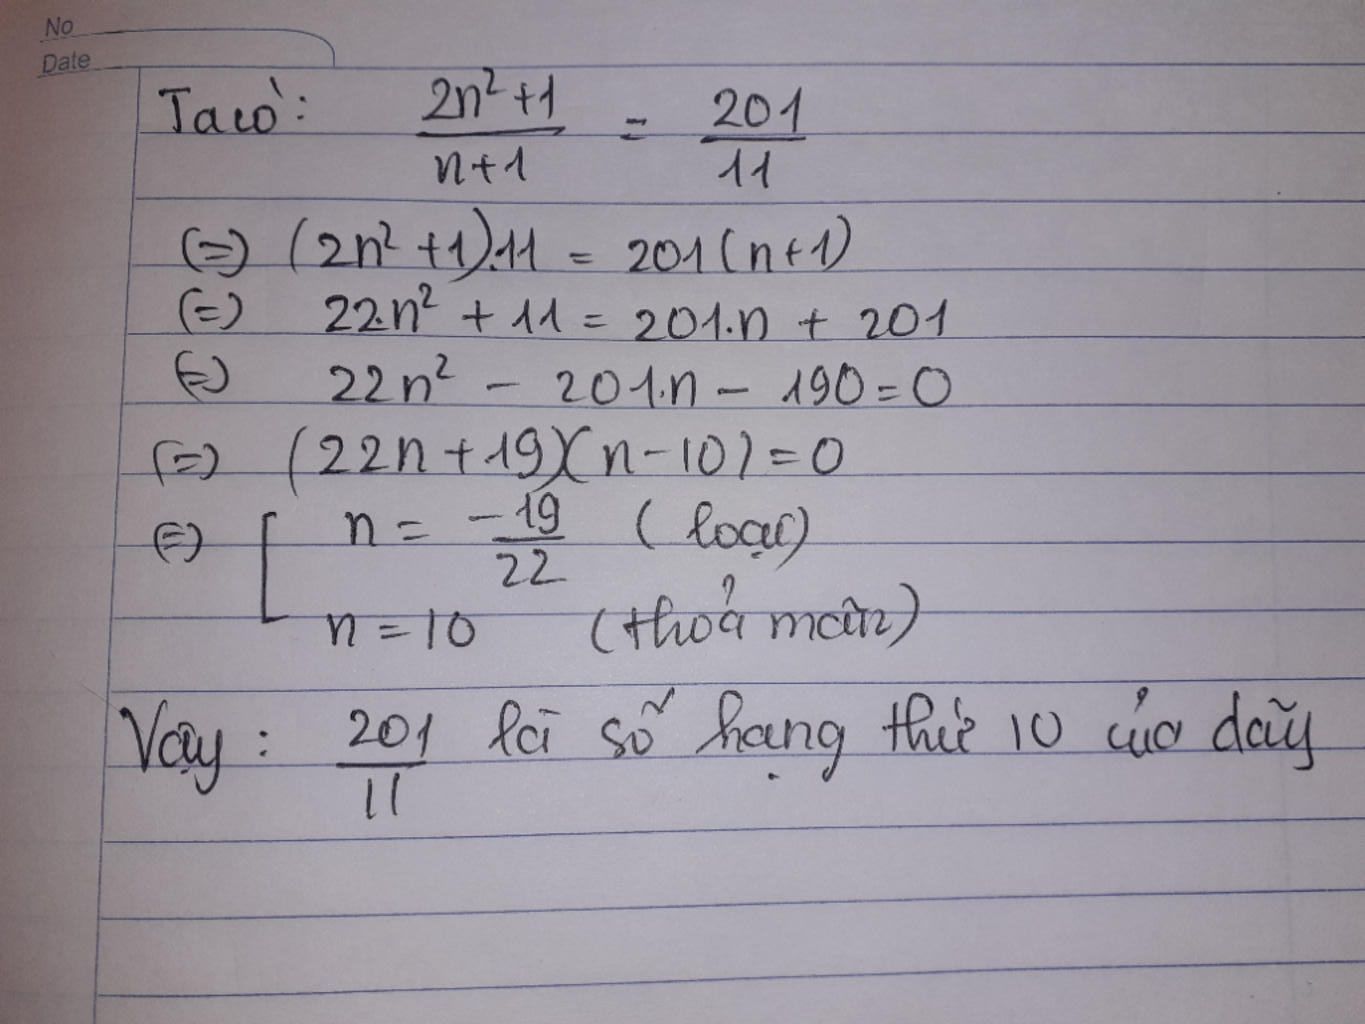 No
Date
Ta có: \frac{2n²+1}{n+1} = \frac{201}{11}
(=) (2n²+1).11 = 201(n+1)
(=) 22.n² + 11 = 201.n + 201
(=) 22n² - 201.n - 190 = 0
(=) (22n+19)(n-10) = 0
(=) [ n = \frac{-19}{22} (loại)
n = 10 (thoả mãn)
Vậy: \frac{201}{11} là số hạng thứ 10 của dãy